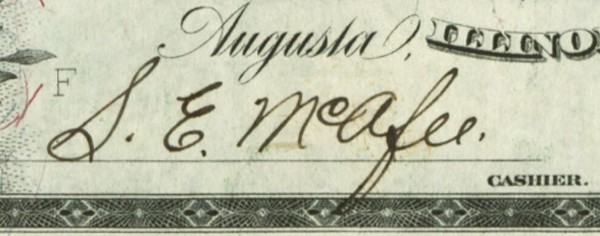 Augusta, ILLINO
F
S. E. McAfee.
CASHIER.